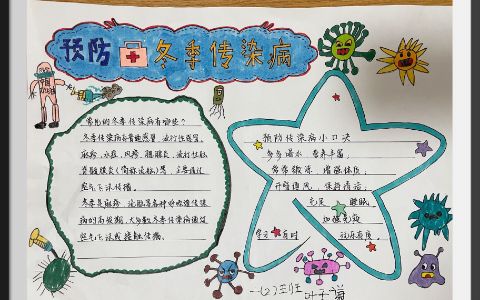 预防冬季传染病
常见的冬季传染病有哪些?
冬季传染病有普通感冒、流行性感冒、
麻疹、水痘、风疹、猩红热、流行性
脊髓膜炎(简称流脑)等,主要通过
空气飞沫传播。
冬季是麻疹、流脑等各种呼吸道传染
病的高发期,大多数冬季传染病通过
空气飞沫或接触传播。
预防传染病小口决
多多喝水,营养丰富,
常常锻炼,增强体质,
开窗通风,保持清洁,
充足 睡眠
加强免疫
学习 有时
一(2)班